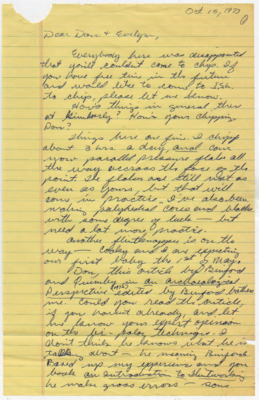 Oct 10, 1973
Dear Don & Evelyn,
Everybody here was disappointed
that you'll couldn't come to chip. If
you have free time in the future
and would like to come to
to chip, please let me know.
How's things in general there
at Kimberly? How's your chipping
Don?
Things here are fine. I chip
about 3 hrs a day, and can
your parallel pressure flake all
the way across the face of the
point. The flakes are still not as
even as yours, but that will
come in practice. I've also been
making polyhedral cores and blades
with some degree of luck — but
need a lot more practice.
Another flintknapper is on the
way — and I are expecting
our first baby the 1st of May.
Don, this article by Binford
and Quimby in an Archaeological
Perspective edited by Binford bothers
me. Could you read the article,
if you haven't already, and let
me know your expert opinion
on the bi-polar technique. I
don't think he knows what he is
talking about — he meaning Binford.
Based upon my experience and your
book an introduction to flintworking
he makes gross errors — some